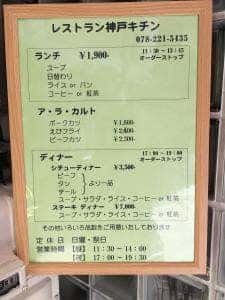 レストラン神戸キチン
078-221-5435
ランチ ¥1,900-
11:30～13:45
オーダーストップ
スープ
日替わり
ライス or パン
コーヒー or 紅茶
ア・ラ・カルト
ポークカツ
エビフライ
ビーフカツ
ディナー
17:00～19:00
オーダーストップ
シチューディナー ¥3,500-
ビーフ
タン より一品
テール
スープ・サラダ・ライス・コーヒー or 紅茶
ステーキ ディナー ¥7,000-
スープ・サラダ・ライス・コーヒー or 紅茶
その他いろいろ品数をご用意いたしております
定休日 日曜・祝日
営業時間 【昼】 11:30～14:00
【夜】 17:00～19:30